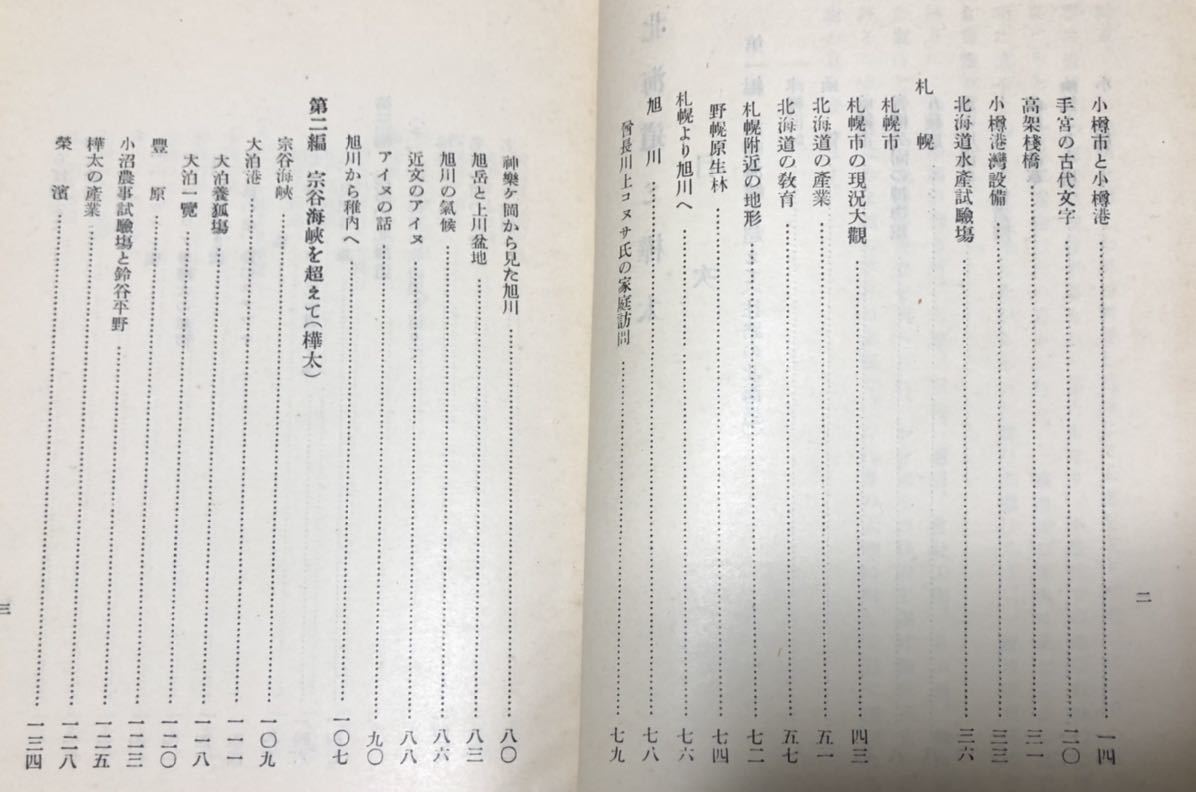 小樽市と小樽港……一四
手宮の古代文字……二〇
高架棧橋……三一
小樽港灣設備……三三
北海道水產試驗塲……三六
札幌
札幌市
札幌市の現況大觀……四三
北海道の產業……五一
北海道の敎育……五七
札幌附近の地形……七二
野幌原生林……七四
札幌より旭川へ……七六
旭川……七八
酋長川上コヌサ氏の家庭訪問……七九
二
神樂ケ岡から見た旭川……八〇
旭岳と上川盆地……八三
旭川の氣候……八六
近文のアイヌ……八八
アイヌの話……九〇
旭川から稚內へ……一〇七
第二編 宗谷海峽を超えて(樺太)
宗谷海峽……一〇九
大泊港……一一一
大泊養狐塲……一一八
大泊一覽……一二〇
豐原……一二三
小沼農事試驗塲と鈴谷平野……一二五
樺太の產業……一二八
榮濱……一三四
三